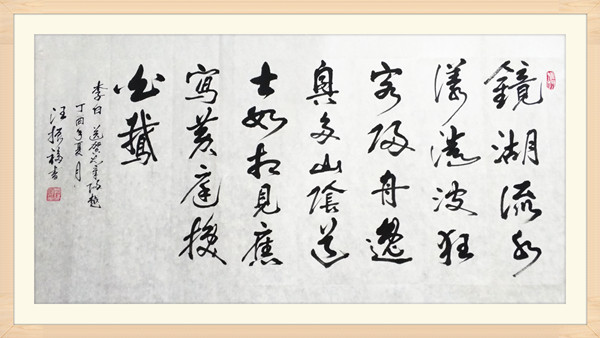 鏡湖流水
漾清波狂
客歸舟逸
興多山陰道
士如相見應
寫黃庭換
白鵝
李白 送賀賓客歸越
丁酉年夏月
汪振福書